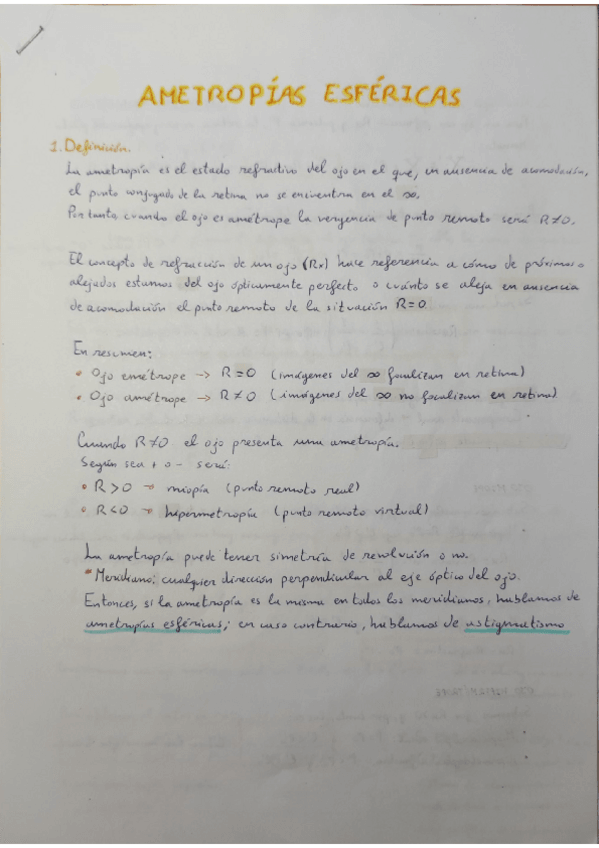 AMETROPÍAS ESFÉRICAS
1. Definición.
La ametropía es el estado refractivo del ojo en el que, en ausencia de acomodación,
el punto conjugado de la retina no se encuentra en el ∞.
Por tanto cuando el ojo es amétrope la vergencia de punto remoto será R≠0.
El concepto de refracción de un ojo (Rx) hace referencia a cómo de próximos o
alejados estamos del ojo ópticamente perfecto o cuánto se aleja en ausencia
de acomodación el punto remoto de la situación R=0.
En resumen:
• Ojo emétrope → R=0 (imágenes del ∞ focalizan en retina)
• Ojo amétrope → R≠0 (imágenes del ∞ no focalizan en retina)
Cuando R≠0 el ojo presenta una ametropía.
Según sea + o - será:
• R>0 → miopía (punto remoto real)
• R<0 → hipermetropía (punto remoto virtual)
La ametropía puede tener simetría de revolución o no.
*Meridiano: cualquier dirección perpendicular al eje óptico del ojo.
Entonces, si la ametropía es la misma en todos los meridianos, hablamos de
ametropías esféricas; en caso contrario, hablamos de astigmatismo